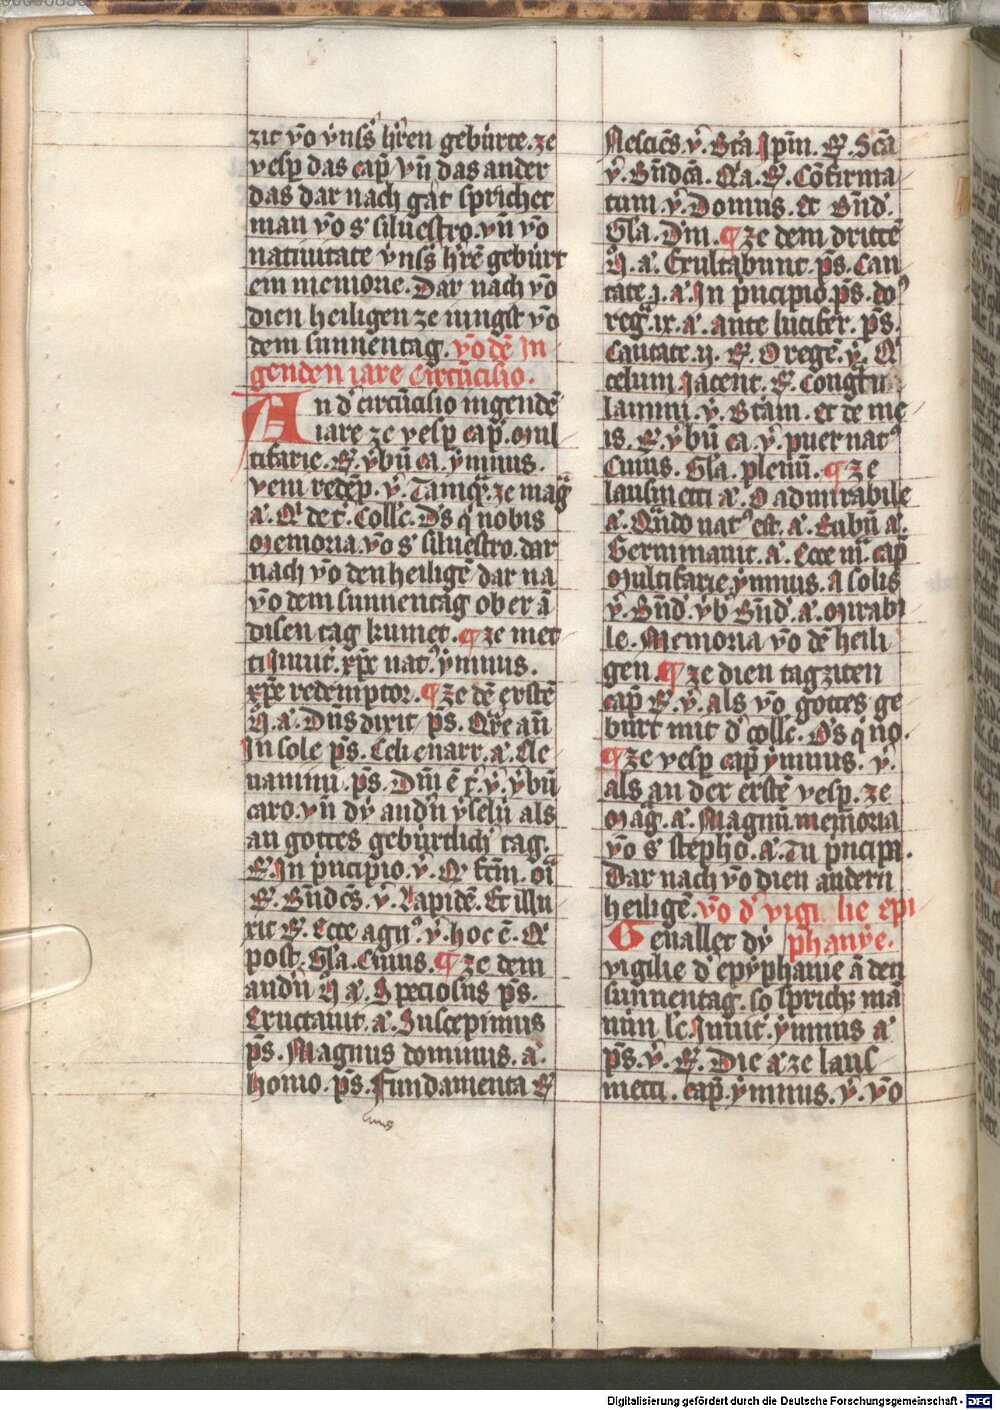 zit vō vnss̄ hr̄en gebürte. ze
vesp̄ das cap̄ vn̄ das ander
das dar nach gat sprichet
man vō s' siluestro. vn̄ vō
natiuitate vnss̄ hr̄e gebürt
ein memorie. Dar nach vō
dien heiligen ze iungst vō
dem sunnentag. vō dē In
genden iare Circūcisio.
An d' circūcisio ingendē
iare ze vesp̄ cap̄. Mul
tifarie. R̄. v̄bū ca. ymnus.
veni redēp. v̄. Tamq̄. ze maḡ
a. Coll'c. Ds q' nobis
Memoria. vō s' siluestro. dar
nach vō den heiligē dar na
vō dem sunnentag ob er ā
disen tag kumet. ¶ ze met
ti Inuit. xp̄c nat' ymnus.
xp̄e redemptor. ¶ ze dē erstē
N̄ a. Dn̄s dixit ps̄. Q̄re
In sole ps̄. Celi enarr. a. Ele
uamini. ps̄. v̄. v̄bū
caro. vn̄ dy andn̄ als
an gottes gebürtlich' tag.
R̄. In p̄ncipio. v̄.
R̄. v̄. Lapidē. Et illu
xit R̄. Ecce agn' v̄. hoc ē. Q'
post. Gl'a. Cuius. ¶ ze dem
andn̄ N̄ a. Speciosus ps̄.
Eructauit. a. Suscepimus
ps̄. Magnus dominus. a.
homo. ps̄. Fundamenta R̄
Nesciēs. v̄. Btā. Ip̄m. R̄. Scā
v̄. Bn̄dcā. R̄. Cōfirma
tum v̄. Domus. et Bn̄d'.
Gl'a. Dm̄. ¶ ze dem drittē
N̄. a. Exultabunt. ps̄. Can
tate. j. a. In p̄ncipio. ps̄. do'
reḡ. ix. a. ante lucifer. ps̄.
Cantate. ij. R̄. O regē. v̄. Q'
celum. Iacent. R̄. Congtu
lamini. v̄. Btām. et de me
is. R̄. v̄bū ca. v̄. puer nat'
Cuius. Gl'a. plenū. ¶ ze
lausmetti a. O admirabile
a. Qn̄do nat' est. a. Rubū a.
Germinauit. a. Ecce m̄. cap̄
Multifarie. ymnus. A solis
v̄. Bn̄d'. vb̄ Bn̄d'. a. Mirabi
le. Memoria vō dē heili
gen. ¶ ze dien tagziten
cap̄ R̄. v̄. als vō gottes ge
burt mit d' coll'c. Ds q' no.
¶ ze vesp̄ cap̄ ymnus. v̄.
als an der erstē vesp̄. ze
Maḡ. a. Magnū. memoria
vō s' stepho. a. Tu p̄ncipi.
Dar nach vō dien andern
heiligē. vō d' vigilie epi
Geuallet dy phanye.
vigilie d' epyphanie ā den
sunnentag. so sprich; mā
nūn l'c. Inuit. ymnus a'
ps̄. v̄. R̄. Die a' ze laus
metti. cap̄. ymnus. v̄. vō
Digitalisierung gefördert durch die Deutsche Forschungsgemeinschaft - DFG